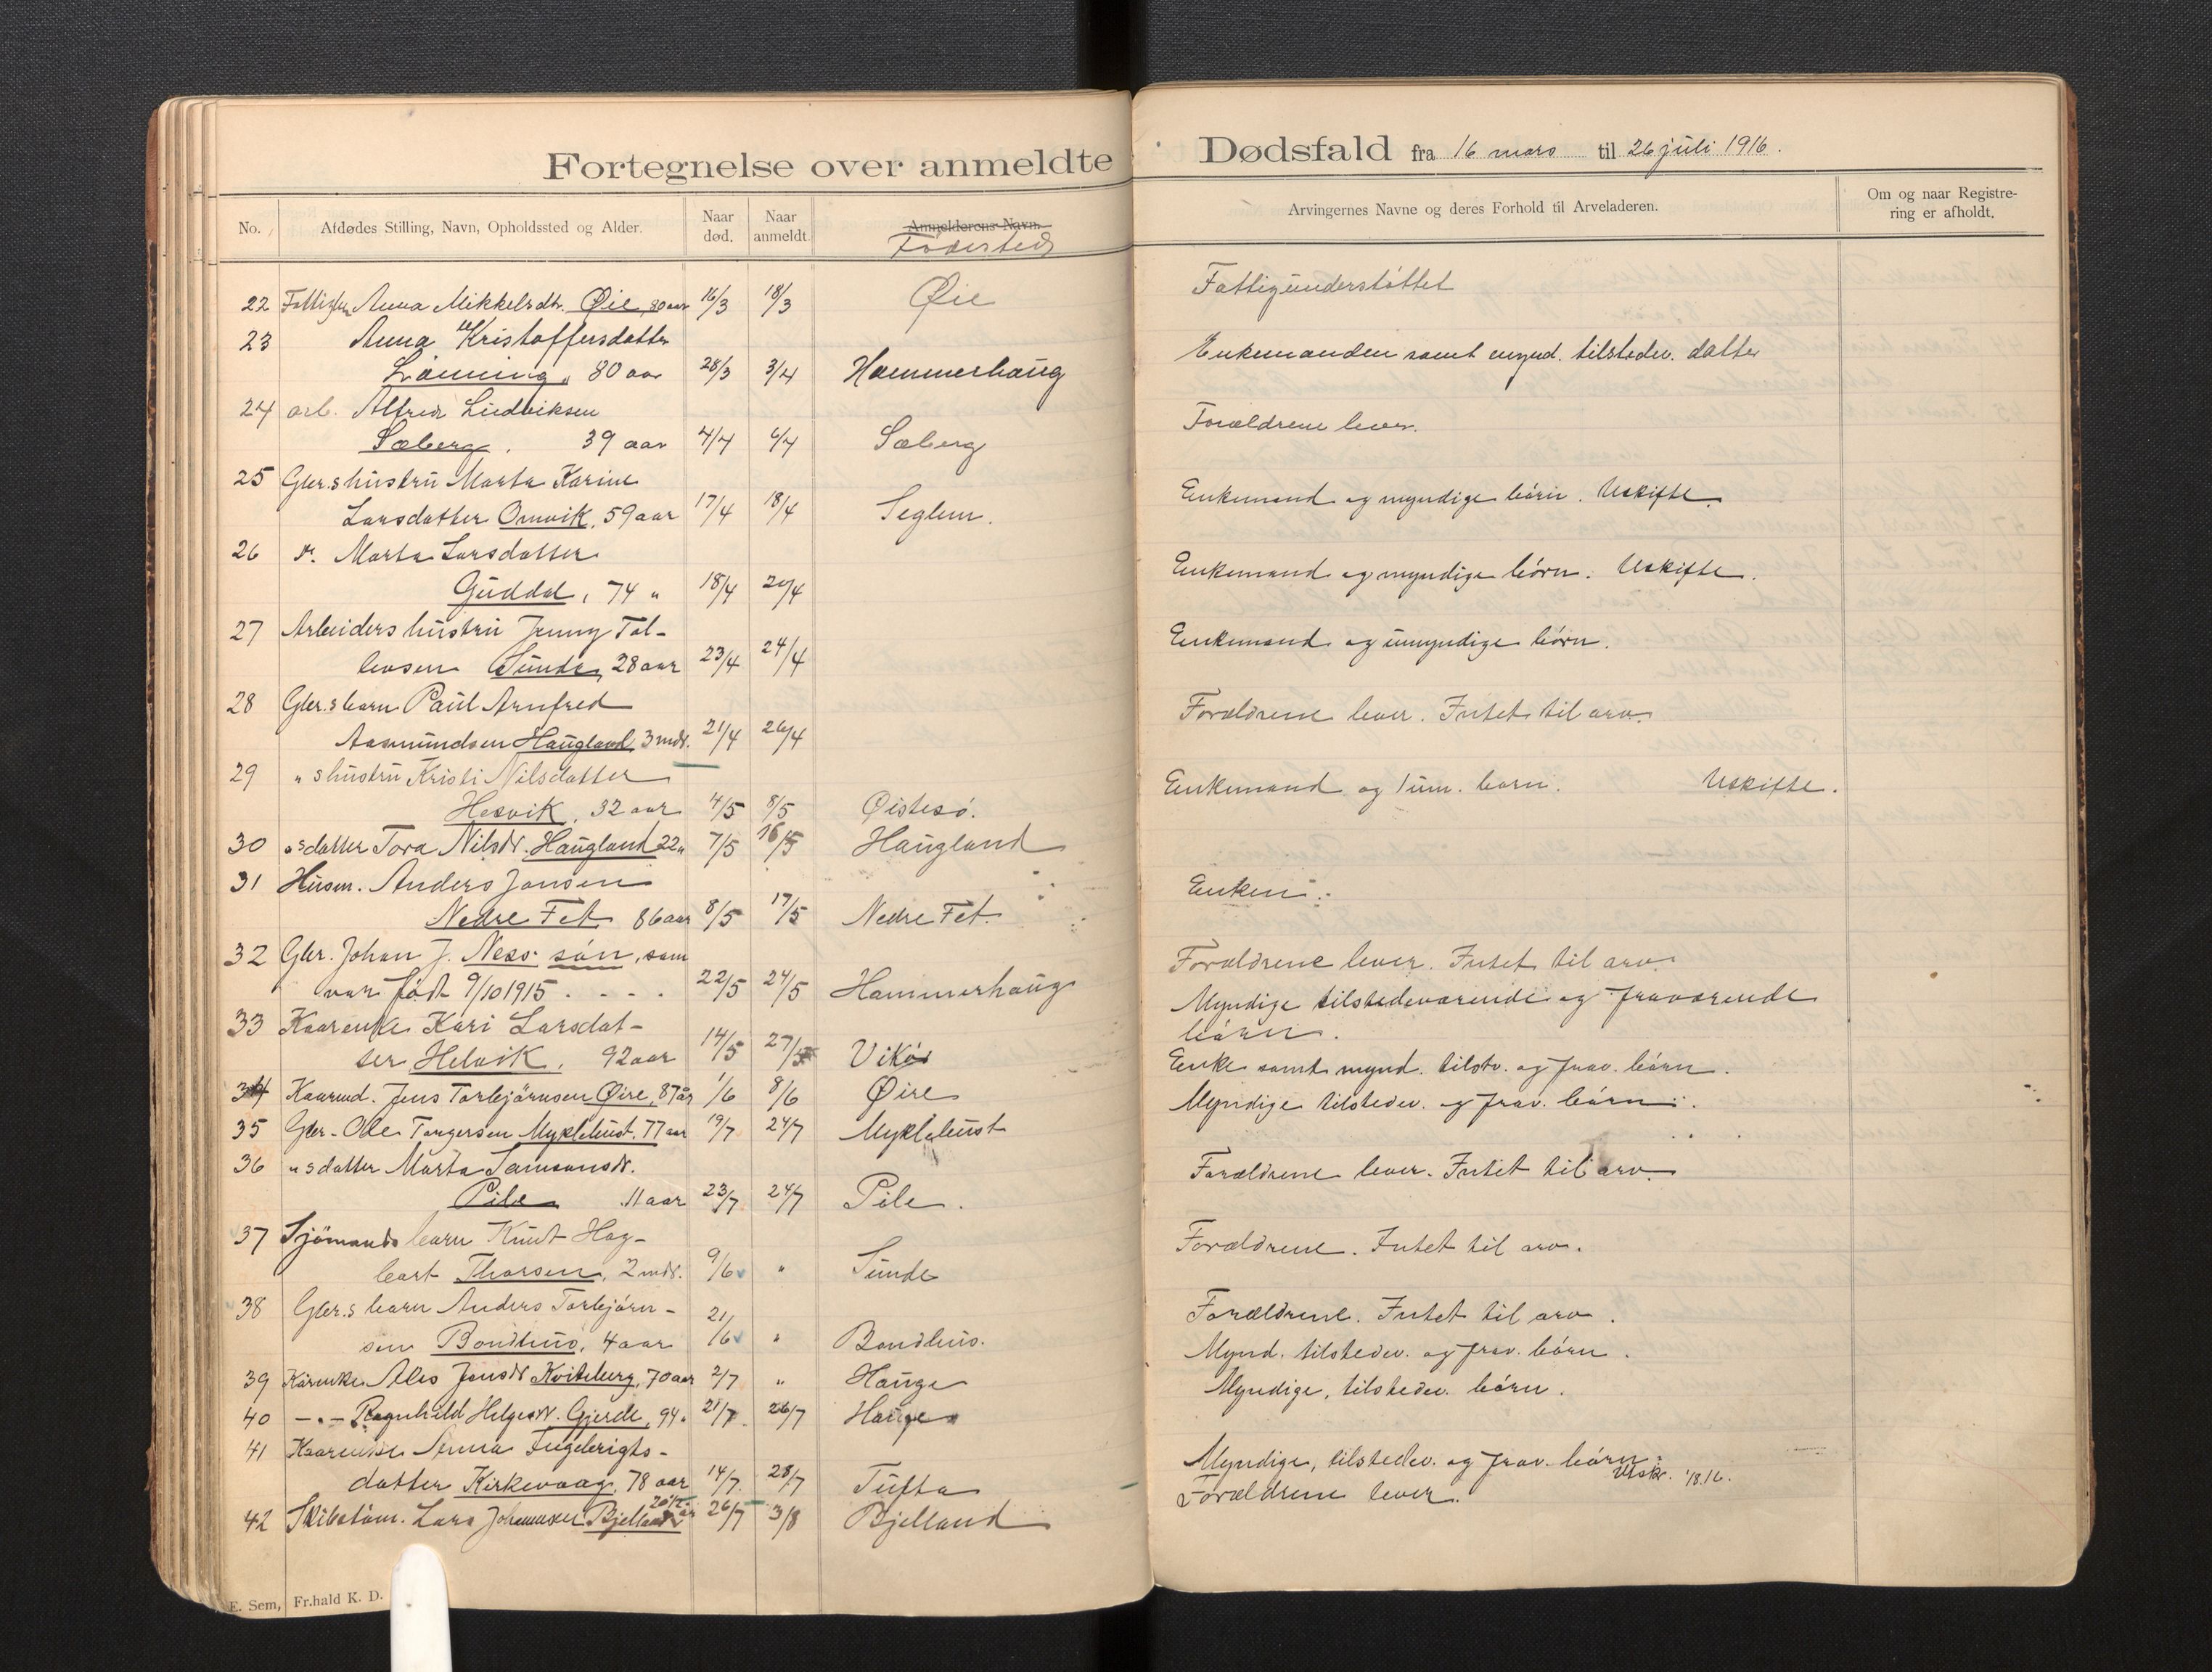 Fortegnelse over anmeldte
No.
Afdødes Stilling, Navn, Opholdssted og Alder.
Naar død.
Naar anmeldt.
Anmelderens Navn.
Födested
22 Anna Mikkelsdtr. Øie, 80 aar 16/3 18/3 Øie
23 Anna Kristoffersdatter
Lönning, 80 aar 28/3 3/4 Hammerhaug
24 arb. Alfred Ludviksen
Sæberg, 39 aar 4/4 6/4 Sæberg
25 Gbr.s hustru Marta Karine
Larsdatter Omvik, 59 aar 17/4 18/4 Seglem.
26 Marta Larsdatter
Guddal, 74 " 18/4 20/4
27 Arbeiders hustru Jenny Tol-
levsen Sunde, 28 aar 23/4 24/4
28 Gbr.s barn Paul Arnfred
Aasmundsen Haugland, 3 mdr. 21/4 26/4
29 " s hustru Kristi Nilsdatter
Hesvik, 32 aar 4/5 8/5 Øistesö.
30 " s datter Tora Nilsdr. Haugland 22 " 7/5 16/5 Haugland
31 Husm. Anders Jansen
Nedre Fet 86 aar 8/5 17/5 Nedre Fet.
32 Gbr. Johan J. Ness sön, som
var födt 9/10 1915 . - - . 22/5 24/5 Hammerhaug
33 Kaarenke Kari Larsdat-
ter Helvik, 92 aar 14/5 27/5 Vikör
34 Kaarmd. Jens Torbjörnsen Øire, 87 år 1/6 8/6 Øire
35 Gbr. Ole Torgersen Myklebust. 77 aar 19/7 24/7 Myklebust
36 " s datter Marta Samsonsdr.
Pile 11 aar 23/7 24/7 Pile.
37 Sjömands barn Knut Hag-
bart Thorsen, 2 mdr. 9/6 " Sunde
38 Gbr.s barn Anders Torbjörn-
sen Bondhus, 4 aar 21/6 " Bondhus.
39 Kårenke Ales Jonsdr Kviteberg, 70 aar 2/7 " Hauge
40 - " - Ragnhild Helgesdr. Gjerde, 94 " 21/7 26/7 Hauge
41 Kaarenke Anna Ingebrigts-
datter Kirkevaag, 78 aar 14/7 28/7 Tufta
42 Lars Johannesen Bjelland 26/7 3/8 Bjelland
E. Sem, Fr.hald K. D.
Dødsfald fra 16 mars til 26 juli 1916.
Arvingernes Navne og deres Forhold til Arveladeren.
Om og naar Registre-
ring er afholdt.
Fattigunderstöttet
Enkemanden samt mynd. tilstedev. datter
Forældrene lever.
Enkemand og myndige börn. Uskifte.
Enkemand og myndige börn. Uskifte.
Enkemand og umyndige börn.
Forældrene lever. Intet til arv.
Enkemand og 1 um. barn. Uskifte.
Enken.
Forældrene lever. Intet til arv.
Myndige tilstedeværende og fraværende
börn.
Enke samt mynd. tilstv. og frav. börn.
Myndige tilstedev. og frav. börn.
Forældrene lever. Intet til arv.
Forældrene. Intet til arv.
Forældrene. Intet til arv.
Mynd. tilstedev. og frav. börn.
Myndige, tilstedev. börn.
Myndige, tilstedev. og frav. börn.
Forældrene lever.